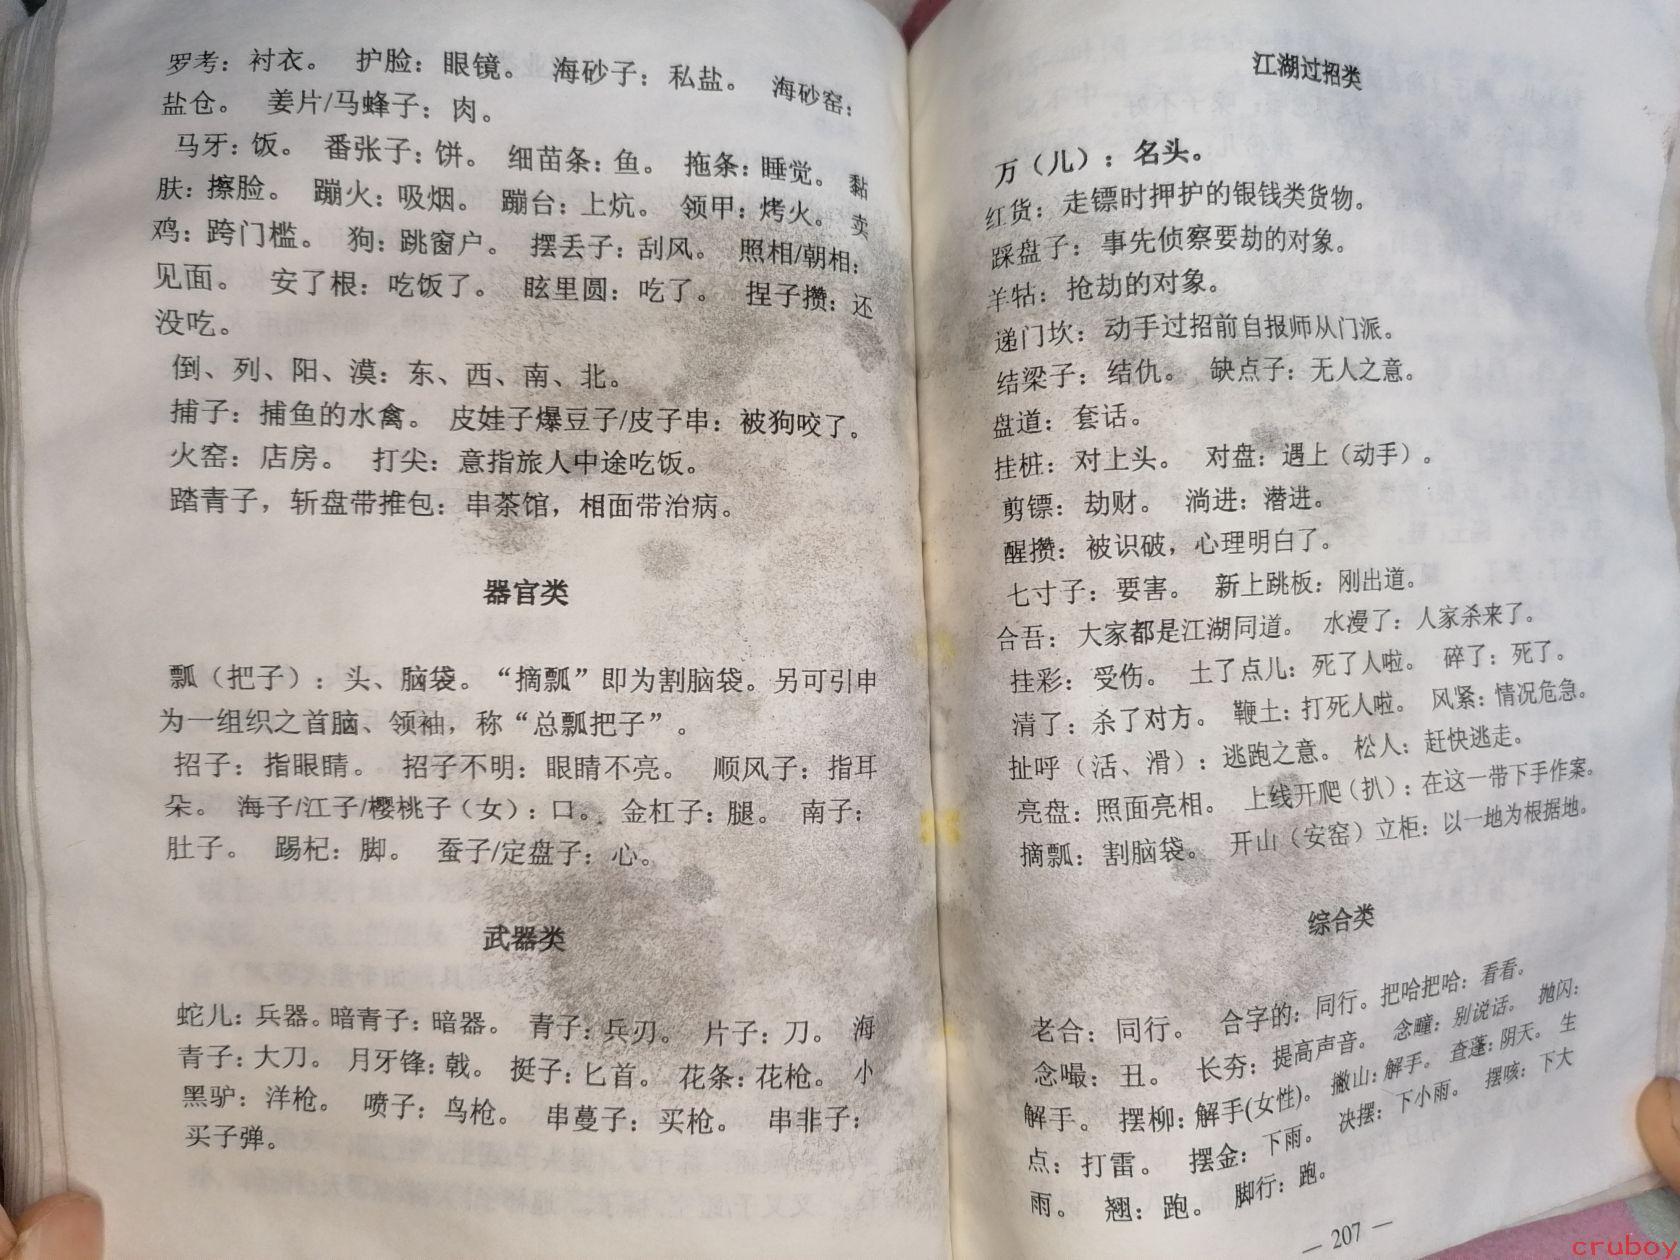 罗考：衬衣。 护脸：眼镜。 海砂子：私盐。 海砂窑：
盐仓。 姜片/马蜂子：肉。
马牙：饭。 番张子：饼。 细苗条：鱼。 拖条：睡觉。 黏
肤：擦脸。 蹦火：吸烟。 蹦台：上炕。 领甲：烤火。 卖
鸡：跨门槛。 狗：跳窗户。 摆丢子：刮风。 照相/朝相：
见面。 安了根：吃饭了。 眩里圆：吃了。 捏子攒：还
没吃。
倒、列、阳、漠：东、西、南、北。
捕子：捕鱼的水禽。 皮娃子爆豆子/皮子串：被狗咬了。
火窑：店房。 打尖：意指旅人中途吃饭。
踏青子，斩盘带推包：串茶馆，相面带治病。
器官类
瓢（把子）：头、脑袋。“摘瓢”即为割脑袋。另可引申
为一组织之首脑、领袖，称“总瓢把子”。
招子：指眼睛。 招子不明：眼睛不亮。 顺风子：指耳
朵。 海子/江子/樱桃子（女）：口。 金杠子：腿。 南子：
肚子。 踢杞：脚。 蚕子/定盘子：心。
武器类
蛇儿：兵器。暗青子：暗器。 青子：兵刃。 片子：刀。 海
青子：大刀。 月牙锋：戟。 挺子：匕首。 花条：花枪。 小
黑驴：洋枪。 喷子：鸟枪。 串蔓子：买枪。 串非子：
买子弹。
江湖过招类
万（儿）：名头。
红货：走镖时押护的银钱类货物。
踩盘子：事先侦察要劫的对象。
羊牯：抢劫的对象。
递门坎：动手过招前自报师从门派。
结梁子：结仇。 缺点子：无人之意。
盘道：套话。
挂桩：对上头。 对盘：遇上（动手）。
剪镖：劫财。 淌进：潜进。
醒攒：被识破，心理明白了。
七寸子：要害。 新上跳板：刚出道。
合吾：大家都是江湖同道。 水漫了：人家杀来了。
挂彩：受伤。 土了点儿：死了人啦。 碎了：死了。
清了：杀了对方。 鞭土：打死人啦。 风紧：情况危急。
扯呼（活、滑）：逃跑之意。 松人：赶快逃走。
亮盘：照面亮相。 上线开爬（扒）：在这一带下手作案。
摘瓢：割脑袋。 开山（安窑）立柜：以一地为根据地。
综合类
老合：同行。 合字的：同行。把哈把哈：看看。
念嘬：丑。 长夯：提高声音。 念疃：别说话。 抛闪：
解手。 摆柳：解手(女性)。 撇山：解手。 查蓬：阴天。 生
点：打雷。 摆金：下雨。 决摆：下小雨。 摆咳：下大
雨。 翘：跑。 脚行：跑。
— 207 —
cruboy